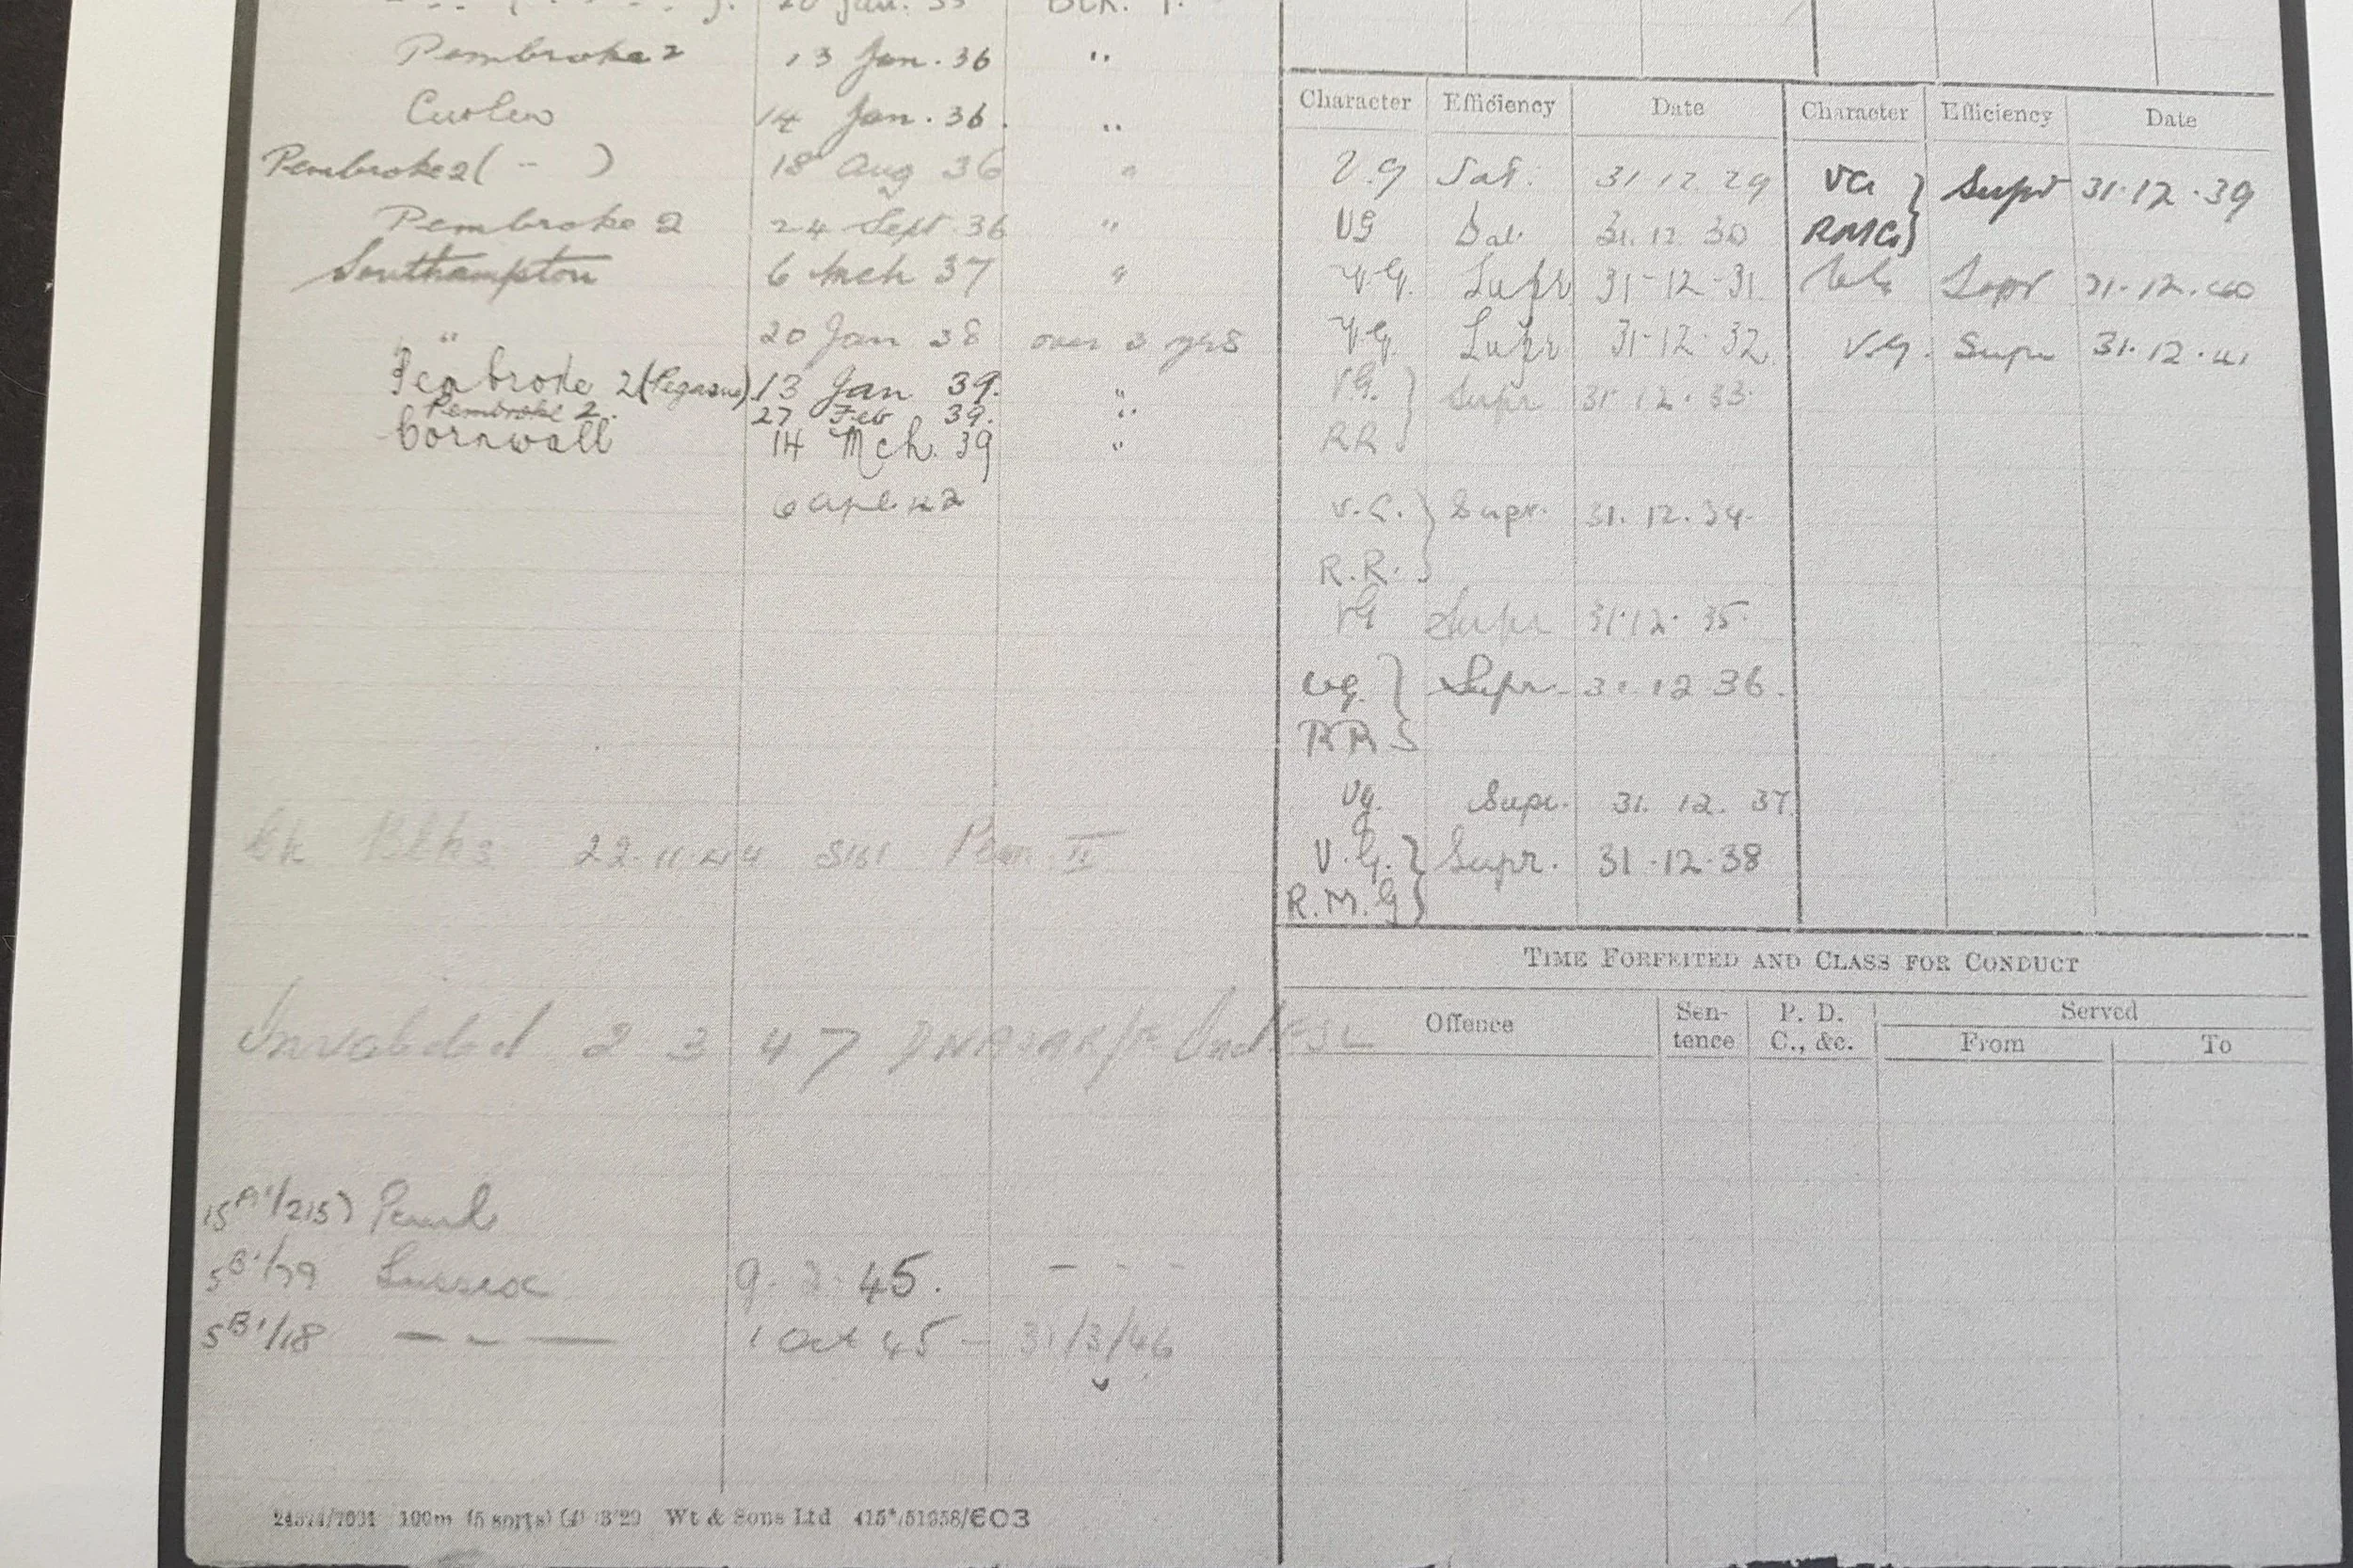 20 Jan. 35
Pembroke 2 13 Jan. 36 "
Curlew 14 Jan. 36. "
Pembroke 2 ( " ) 18 Aug 36 "
Pembroke 2 24 Sept 36 "
Southampton 6 Mch 37 "
" 20 Jan 38 over 3 yrs
Pembroke 2 (Pegasus) 13 Jan 39. "
Pembroke 2. 27 Feb 39. "
Cornwall 14 Mch. 39 "
6 Apl. 42
22.11.44 Pem. II
Invalided 2 3 47
15A'/215)
5B'/79 Sussex 9. 45. - - -
5B'/18 — - — 1 Oct 45 - 31/3/46
24 100m (5 sorts) 3'29 Wt & Sons Ltd 415*/51958/603
Character Efficiency Date
V.g Sat. 31 12 29
VG Sat. 31. 12. 30
V.G. Supr 31-12-31
V.G. Supr 31-12-32.
V.G. } Supr 31 12. 33.
RR
V.G. } Supr. 31. 12. 34.
R.R.
VG Supr 31.12. 35.
Vg. } Supr. 31 12 36.
RR
Vg. Supr. 31. 12. 37
V.G. } Supr. 31-12-38
R.M.G
Character Efficiency Date
VG } Supr 31.12.39
RMG
Supr 31.12.40
V.G. Supr 31.12.41
TIME FORFEITED AND CLASS FOR CONDUCT
Offence Sentence P. D. C., &c. Served
From To